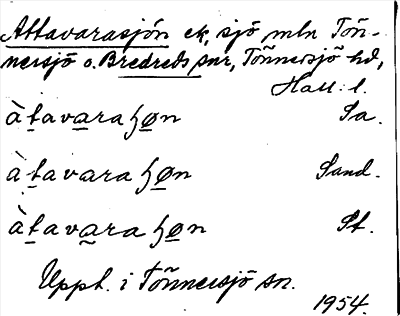 Attavarasjön ek, sjö mln Töñ-
nersjö o. Bredreds snr, Töñnersjö hd,
Hall. l.
àtavaraɧøn Sa.
àtavaraɧøn Sand.
àtavaraɧøn St.
Uppt. i Töñnersjö sn.
1954.